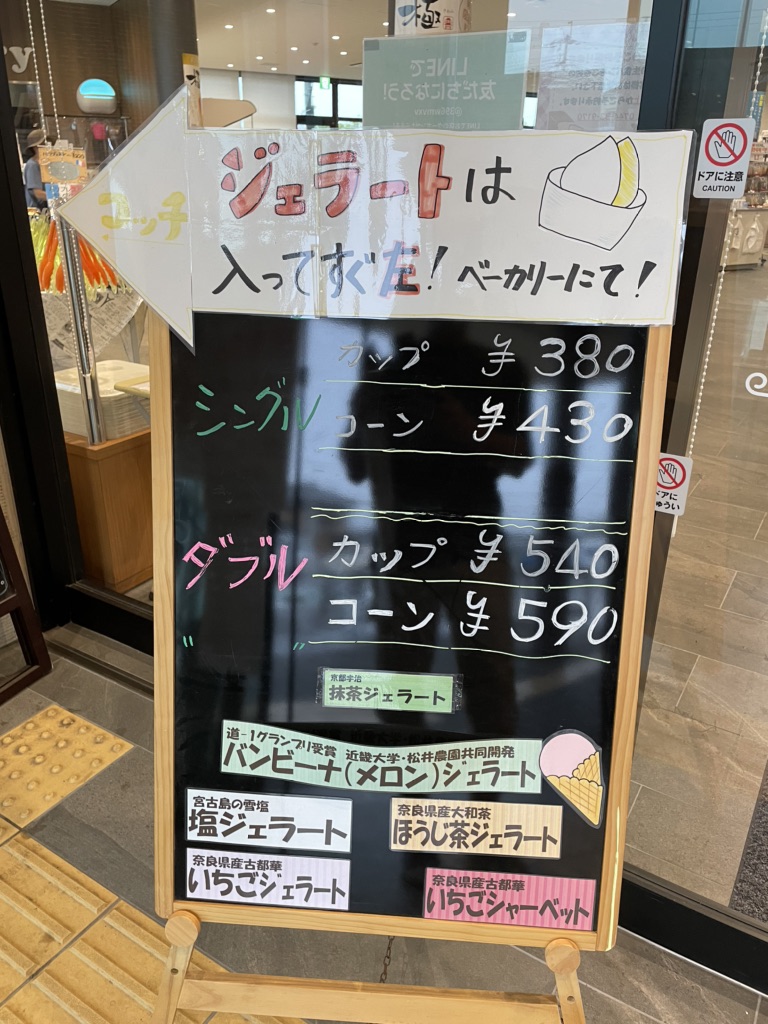 極
LINEで
友だちになろう!
ドアに注意
CAUTION
コッチ
ジェラートは
入ってすぐ左! ベーカリーにて!
シングル
カップ ¥380
コーン ¥430
ダブル
カップ ¥540
〃 コーン ¥590
京都宇治
抹茶ジェラート
道-1グランプリ受賞 近畿大学・松井農園共同開発
バンビーナ(メロン)ジェラート
宮古島の雪塩
塩ジェラート
奈良県産大和茶
ほうじ茶ジェラート
奈良県産古都華
いちごジェラート
奈良県産古都華
いちごシャーベット